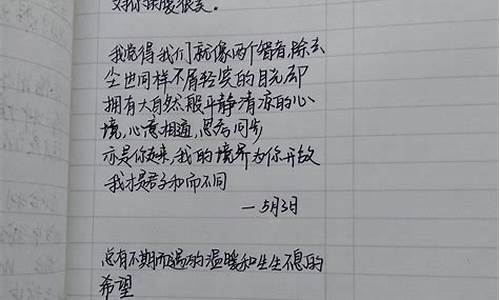 对你深度很关。
我觉得我们就像两个智者,除去
尘世同样不屑轻笑的目光却
拥有大自然般平静清凉的心
境,心意相通,思为同步
亦是你走来,我的境界为你开放
我才是君子和而不同
一5月3日
总有不期而遇的温暖和生生不息的
希望